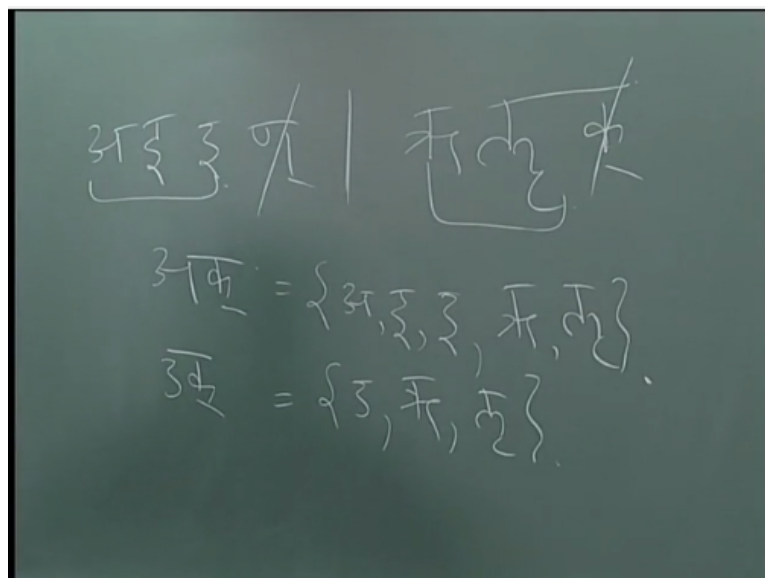 अ इ उ ण् | ऋ लृ क्
अक् = {अ, इ, उ, ऋ, लृ}.
उक् = {उ, ऋ, लृ}.